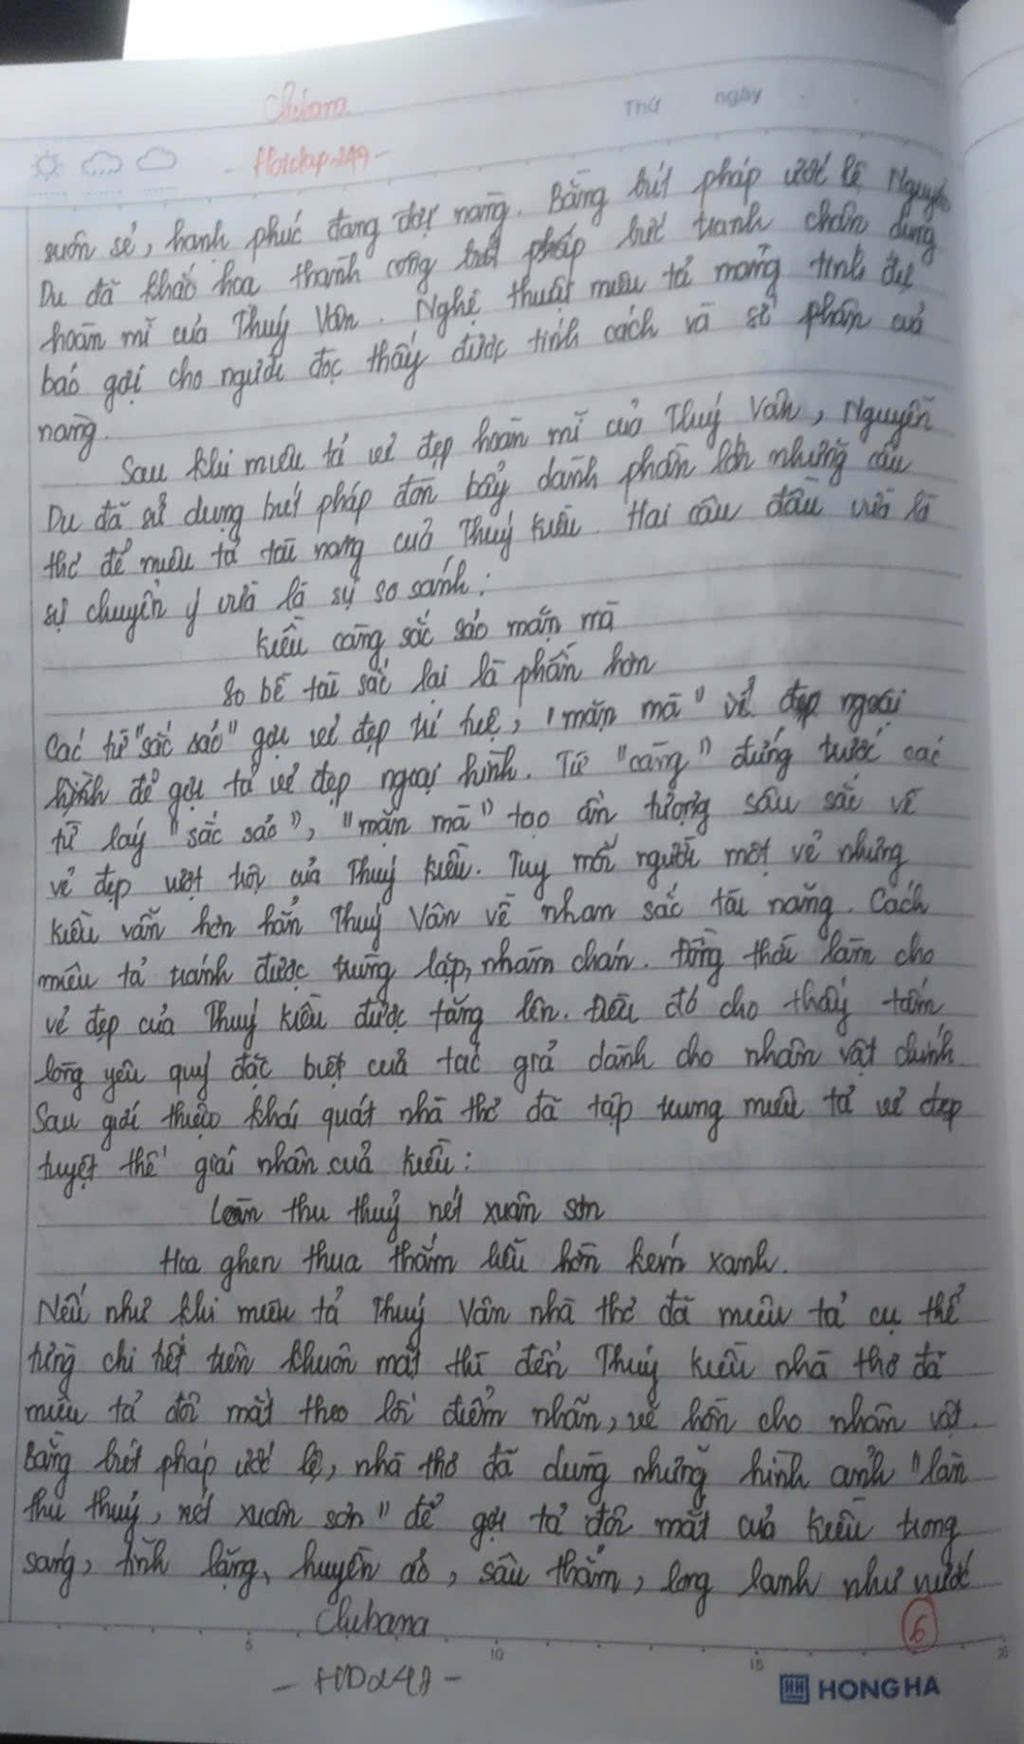 Clubana
Thứ ngày
- Hoidap247 -
suôn sẻ, hạnh phúc đang đợi nàng. Bằng bút pháp ước lệ Nguyễn
Du đã khắc họa thành công bút pháp bức tranh chân dung
hoàn mĩ của Thuý Vân. Nghệ thuật miêu tả mang tính dự
báo gợi cho người đọc thấy được tính cách và số phận của
nàng.
Sau khi miêu tả vẻ đẹp hoàn mĩ của Thuý Vân, Nguyễn
Du đã sử dụng bút pháp đòn bẩy dành phần lớn những câu
thơ để miêu tả tài năng của Thuý Kiều. Hai câu đầu vừa là
sự chuyển ý vừa là sự so sánh:
Kiều càng sắc sảo mặn mà
So bề tài sắc lại là phần hơn
Các từ "sắc sảo" gợi vẻ đẹp trí tuệ, "mặn mà" vẻ đẹp ngoại
hình để gợi tả vẻ đẹp ngoại hình. Từ "càng" đứng trước các
từ láy "sắc sảo", "mặn mà" tạo ấn tượng sâu sắc về
vẻ đẹp vượt trội của Thuý Kiều. Tuy mỗi người một vẻ nhưng
Kiều vẫn hơn hẳn Thuý Vân về nhan sắc tài năng. Cách
miêu tả tránh được trùng lặp, nhàm chán. Đồng thời làm cho
vẻ đẹp của Thuý Kiều được tăng lên. Điều đó cho thấy tấm
lòng yêu quý đặc biệt của tác giả dành cho nhân vật chính
Sau giới thiệu khái quát nhà thơ đã tập trung miêu tả vẻ đẹp
tuyệt thế giai nhân của Kiều:
Làn thu thuỷ nét xuân sơn
Hoa ghen thua thắm liễu hờn kém xanh.
Nếu như khi miêu tả Thuý Vân nhà thơ đã miêu tả cụ thể
từng chi tiết trên khuôn mặt thì đến Thuý Kiều nhà thơ đã
miêu tả đôi mắt theo lối điểm nhãn, vẽ hồn cho nhân vật.
Bằng bút pháp ước lệ, nhà thơ đã dùng những hình ảnh "làn
thu thuỷ, nét xuân sơn" để gợi tả đôi mắt của Kiều trong
sáng, tĩnh lặng, huyền ảo, sâu thẳm, long lanh như nước
Clubana
6
5 10 15 20
- HD247 -
HH HONG HA